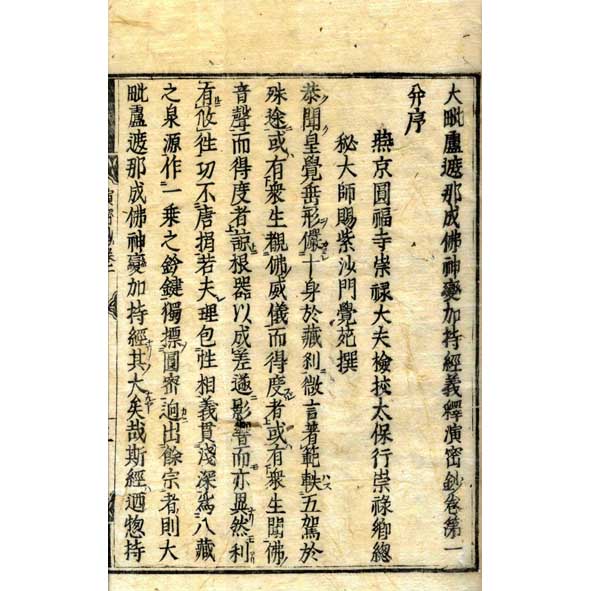 大毗盧遮那成佛神變加持經義釋演密鈔卷第一
并序
燕京圓福寺崇祿大夫檢挍太保行崇祿卿總
秘大師賜紫沙門覺苑撰
恭聞皇覺垂形儼十身於藏刹微言著範軼五駕於
殊途或有衆生覩佛威儀而得度者或有衆生聞佛
音聲而得度者諒根器以成差遞影響而亦異然利
有攸徃功不唐捐若夫理包性相義貫淺深爲八藏
之泉源作一乘之鈐鍵獨摽圓宻迥出餘宗者則大
毗盧遮那成佛神變加持經其大矣哉斯經迺惣持